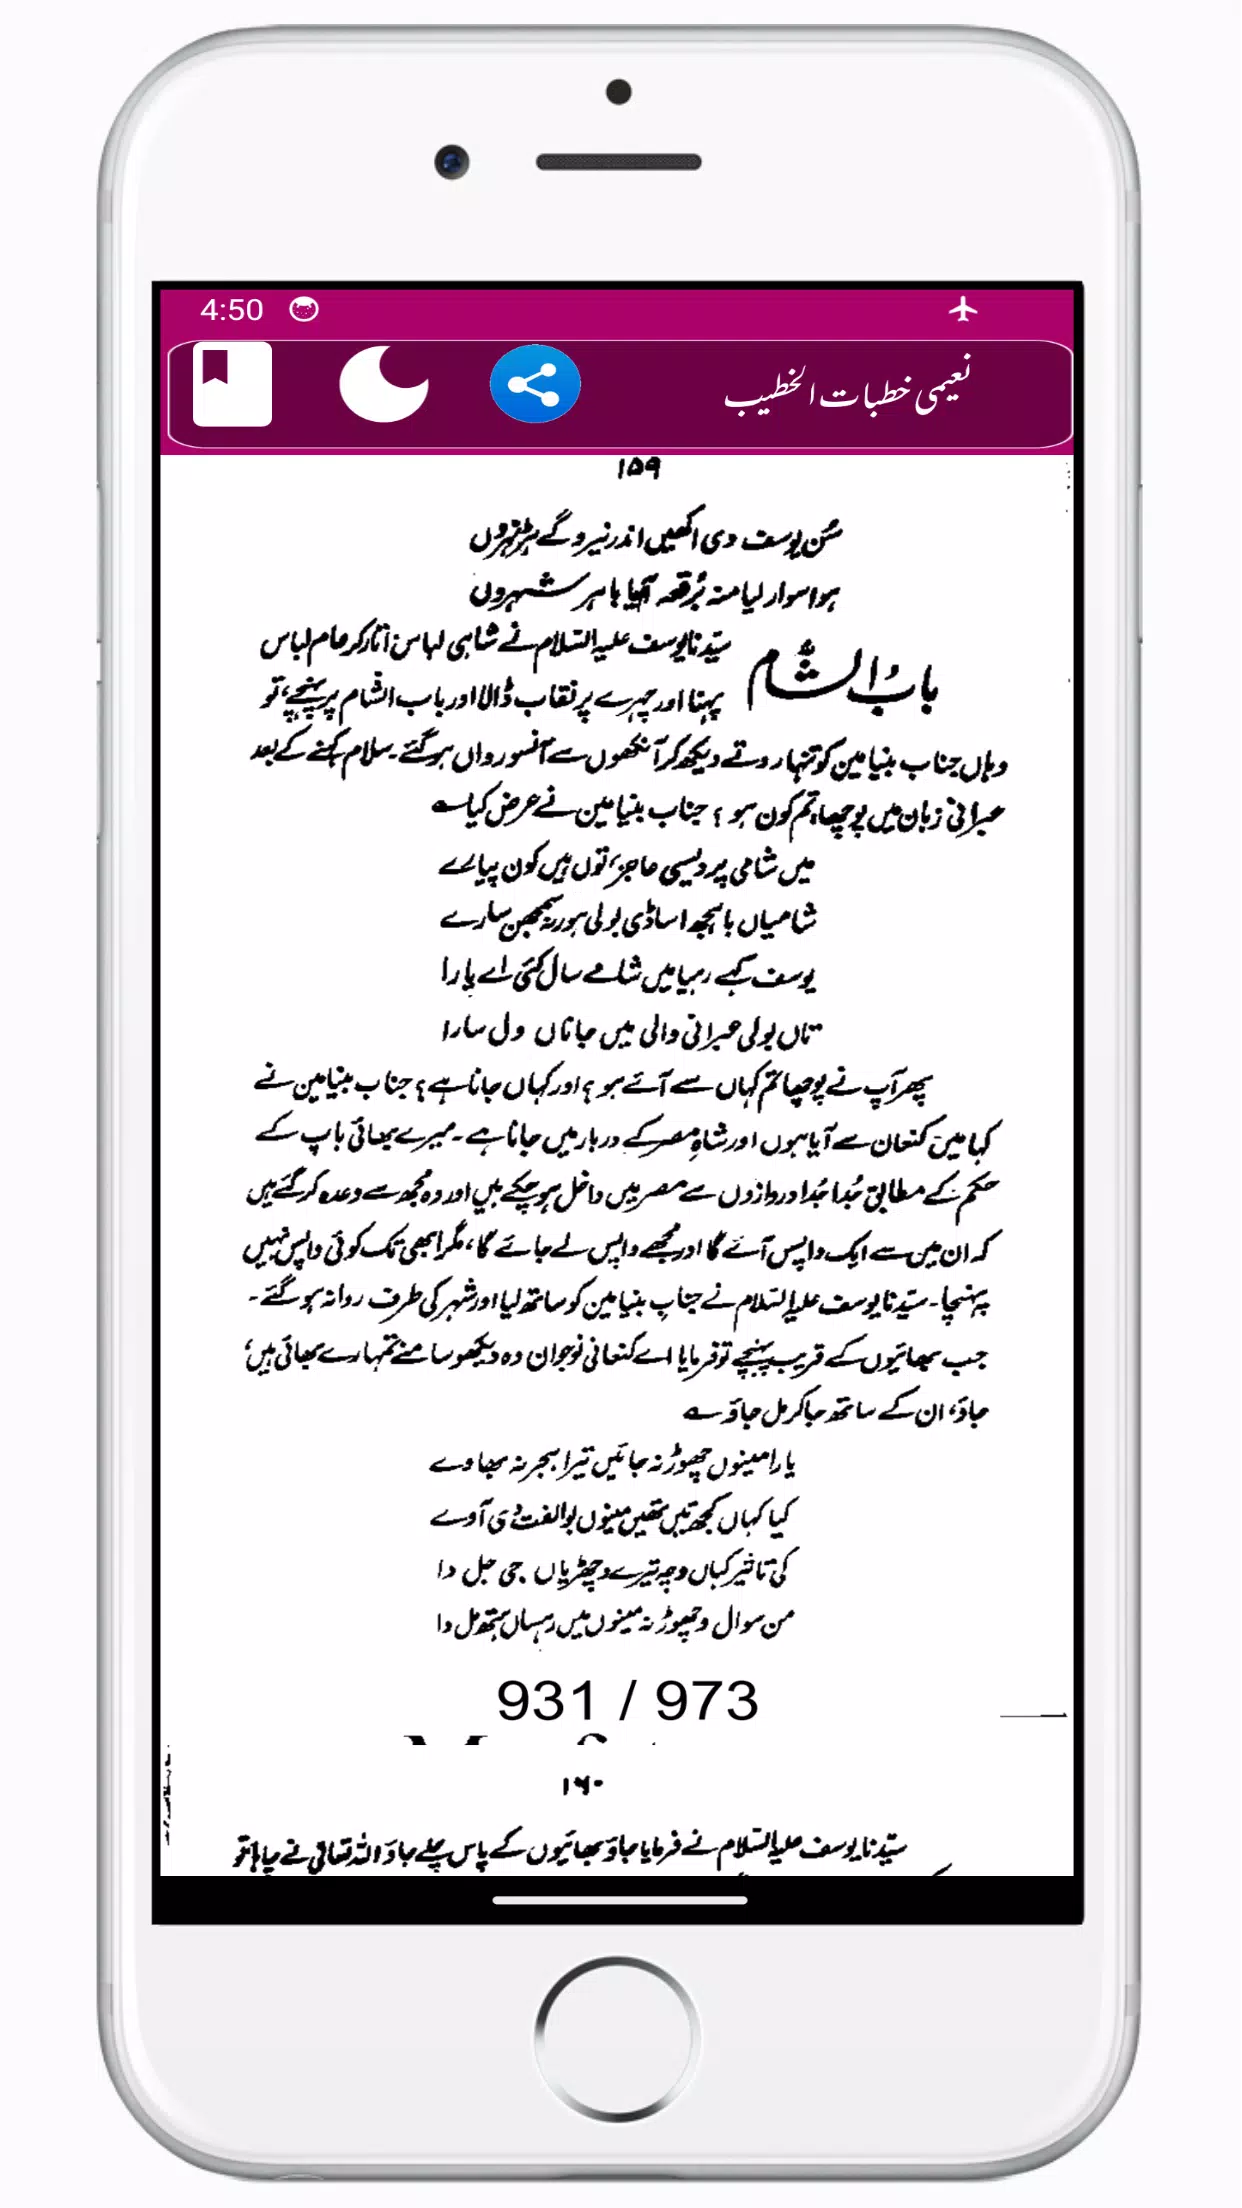 4:50
نعیمی خطبات الخطیب
۱۵۹
سُن یوسف دی اکھیں اندر نیر وگے
ہو اسوار لیا منہ بُرقعہ آیا باہر شہروں
بابُ الشّام
سیّدنا یوسف علیہ السّلام نے شاہی لباس اتار کر عام لباس
پہنا اور چہرے پر نقاب ڈالا اور باب الشّام پر پہنچے، تو
وہاں جناب بنیامین کو تنہا روتے دیکھ کر آنکھوں سے آنسو رواں ہو گئے۔ سلام کہنے کے بعد
عبرانی زبان میں پوچھا، تم کون ہو ؟ جناب بنیامین نے عرض کیا ؎
میں شامی پردیسی عاجز، توں ہیں کون پیارے
شامیاں باہجھ اساڈی بولی ہور نہ سمجھن سارے
یوسف کہے رہیا میں شامے سال کئی اے یارا
تاں بولی عبرانی والی میں جاناں ول سارا
پھر آپ نے پوچھا تم کہاں سے آئے ہو ؟ اور کہاں جانا ہے ؟ جناب بنیامین نے
کہا میں کنعان سے آیا ہوں اور شاہِ مصر کے دربار میں جانا ہے۔ میرے بھائی باپ کے
حکم کے مطابق جُدا جُدا دروازوں سے مصر میں داخل ہو چکے ہیں اور وہ مجھ سے وعدہ کر گئے ہیں
کہ ان میں سے ایک واپس آئے گا اور مجھے واپس لے جائے گا، مگر ابھی تک کوئی واپس نہیں
پہنچا۔ سیّدنا یوسف علیہ السّلام نے جناب بنیامین کو ساتھ لیا اور شہر کی طرف روانہ ہو گئے۔
جب بھائیوں کے قریب پہنچے تو فرمایا اے کنعانی نوجوان وہ دیکھو سامنے تمہارے بھائی ہیں،
جاؤ، ان کے ساتھ جا کر مل جاؤ ؎
یارا مینوں چھوڑ نہ جائیں تیرا ہجر نہ بھاوے
کیا کہاں کجھ تیں تھیں مینوں بو الفت دی آوے
کی تاثیر کہاں وچہ تیرے وچھڑیاں جی جل دا
من سوال وچھوڑ نہ مینوں میں رہساں ہتھ مل دا
931 / 973
۱۶۰
سیّدنا یوسف علیہ السّلام نے فرمایا جاؤ بھائیوں کے پاس چلے جاؤ اللہ تعالیٰ نے چاہا تو